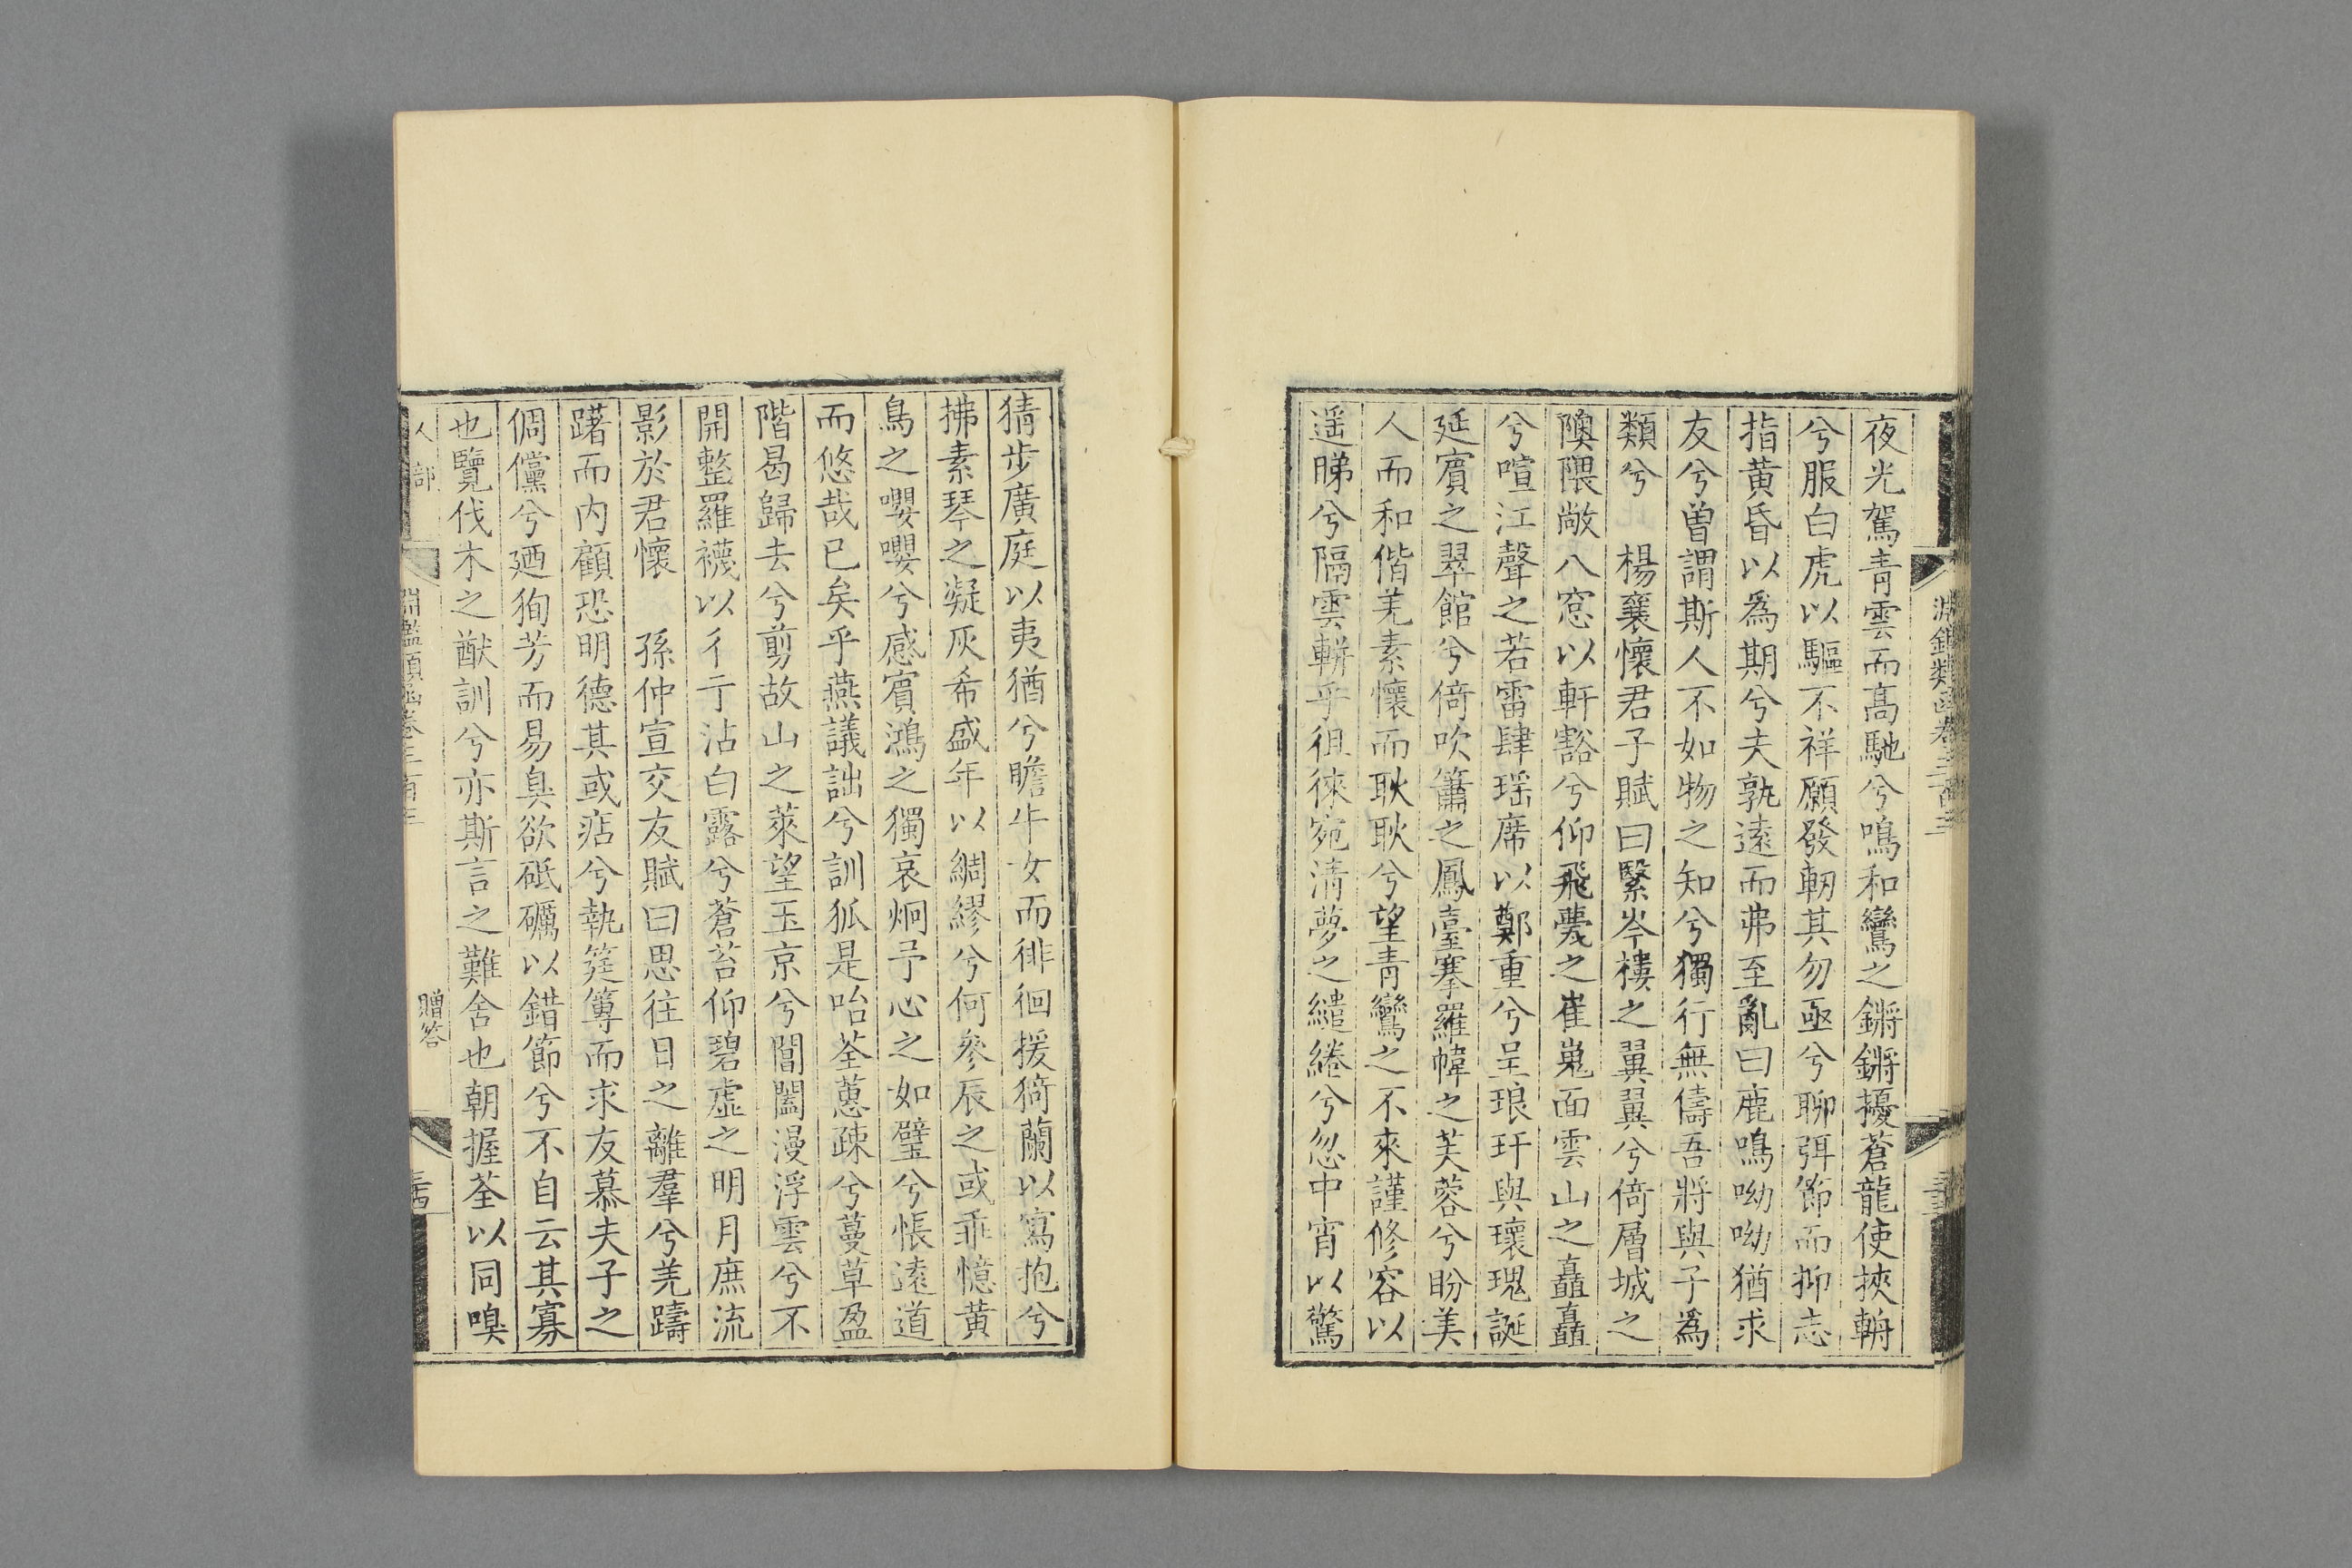 夜光駕青雲而高馳兮鳴和鸞之鏘鏘擾蒼龍使挾輈
兮服白虎以驅不祥願發軔其勿亟兮聊弭節而抑志
指黃昏以爲期兮夫孰遠而弗至亂曰鹿鳴呦呦猶求
友兮曾謂斯人不如物之知兮獨行無儔吾將與子爲
類兮 楊襄懷君子賦曰繄岑樓之翼翼兮倚層城之
隩隈敞八窓以軒豁兮仰飛甍之崔嵬面雲山之矗矗
兮喧江聲之若雷肆瑶席以鄭重兮呈琅玕與瓌瑰誕
延賓之翠館兮倚吹簫之鳳臺搴羅幃之芙蓉兮盼美
人而和偕羌素懷而耿耿兮望青鸞之不來謹修容以
遥睇兮隔雲軿乎徂徠宛清夢之繾綣兮忽中宵以驚
猜步廣庭以夷猶兮瞻牛女而徘徊援猗蘭以寫抱兮
拂素琴之凝灰希盛年以綢繆兮何參辰之或乖憶黃
鳥之嚶嚶兮感賓鴻之獨哀炯予心之如璧兮悵遠道
而悠哉已矣乎燕議詘兮訓狐是咍荃蕙疎兮蔓草盈
階曷歸去兮剪故山之萊望玉京兮閶闔漫浮雲兮不
開整羅襪以彳亍沾白露兮蒼苔仰碧虛之明月庶流
影於君懷 孫仲宣交友賦曰思往日之離羣兮羌躊
躇而内顧恐明德其或玷兮執筳篿而求友慕夫子之
倜儻兮廼狥芳而易臭欲砥礪以錯節兮不自云其寡
也覽伐木之猷訓兮亦斯言之難舍也朝握荃以同嗅
人部
淵鑑類函卷三百三
贈答